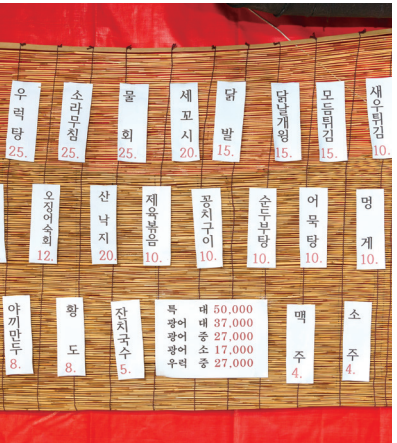 우럭탕 25.
소라무침 25.
물회 25.
세꼬시 20.
닭발 15.
닭날개윙 15.
모듬튀김 15.
새우튀김 10.
오징어숙회 12.
산낙지 20.
제육볶음 10.
꽁치구이 10.
순두부탕 10.
어묵탕 10.
멍게 10.
야끼만두 8.
황도 8.
잔치국수 5.
특 대 50,000
광어 대 37,000
광어 중 27,000
광어 소 17,000
우럭 중 27,000
맥주 4.
소주 4.